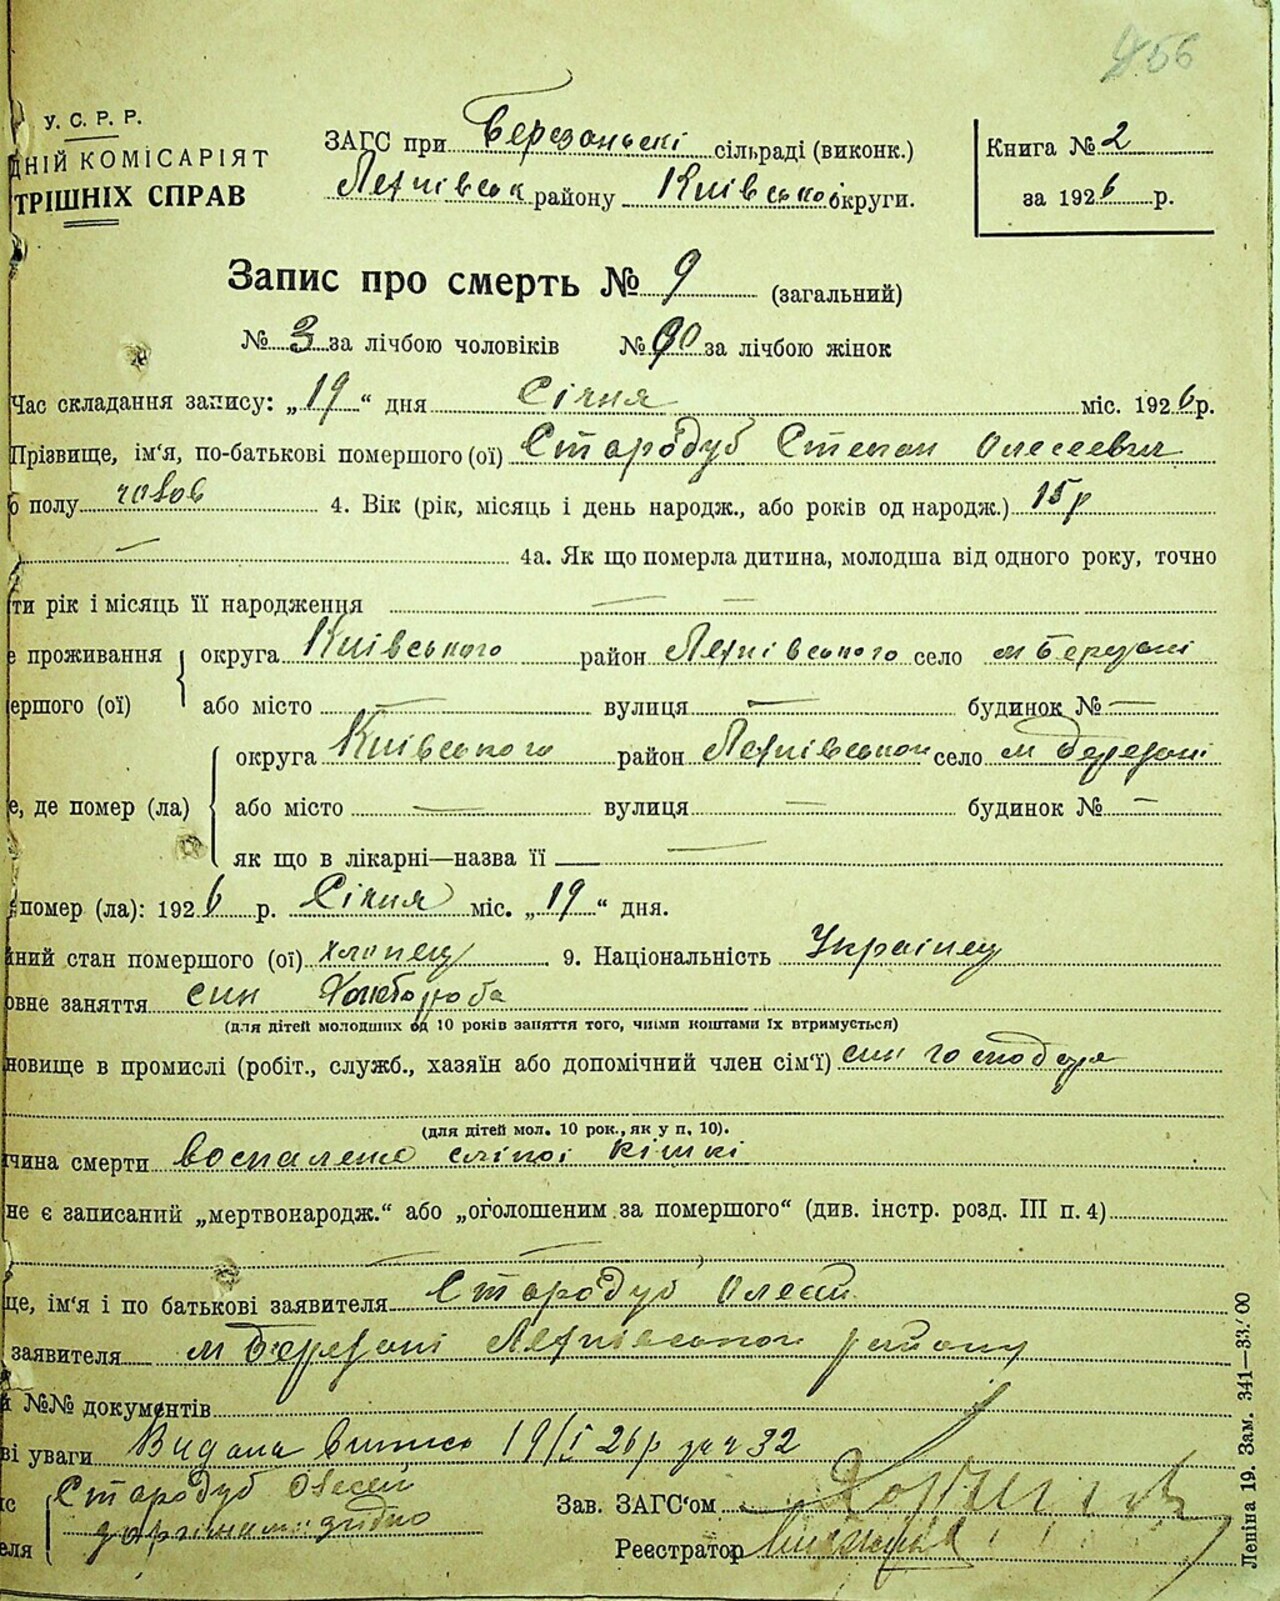 56
У. С. Р. Р.
ДНІЙ КОМІСАРІЯТ
ТРІШНІХ СПРАВ
ЗАГС при Березанські сільраді (виконк.)
району Київського округи.
Книга № 2
за 1926 р.
Запис про смерть № 9 (загальний)
№ 3 за лічбою чоловіків № за лічбою жінок
Час складання запису: „19“ дня Січня міс. 1926 р.
Прізвище, ім'я, по-батькові помершого (ої) Стародуб Степан Олесеевич
о полу чолов 4. Вік (рік, місяць і день народж., або років од народж.) 15 р
— 4а. Як що померла дитина, молодша від одного року, точно
ти рік і місяць її народження — —
е проживання округа Київського район село м Березані
ершого (ої) або місто — вулиця — будинок № —
округа Київського район село м Березані
е, де помер (ла) або місто — вулиця — будинок № —
як що в лікарні—назва її —
помер (ла): 1926 р. Січня міс. „19“ дня.
йний стан помершого (ої) хлопец 9. Національність Українец
овне заняття син Хлібороба
(для дітей молодших од 10 років заняття того, чиїми коштами їх втримується)
новище в промислі (робіт., служб., хазяїн або допомічний член сім'ї) син господаря
(для дітей мол. 10 рок., як у п. 10).
чина смерти воспалено сліпої кішкі
не є записаний „мертвонародж.“ або „оголошеним за помершого“ (див. інстр. розд. III п. 4)
— —
це, ім'я і по батькові заявителя Стародуб Олесій
заявителя м Березані району
й №№ документів
ві уваги Видана випись 19/I 26 р за ч 32
ис Стародуб
еля
Зав. ЗАГС'ом
Реєстратор
Леніна 19. Зам. 341—33.000